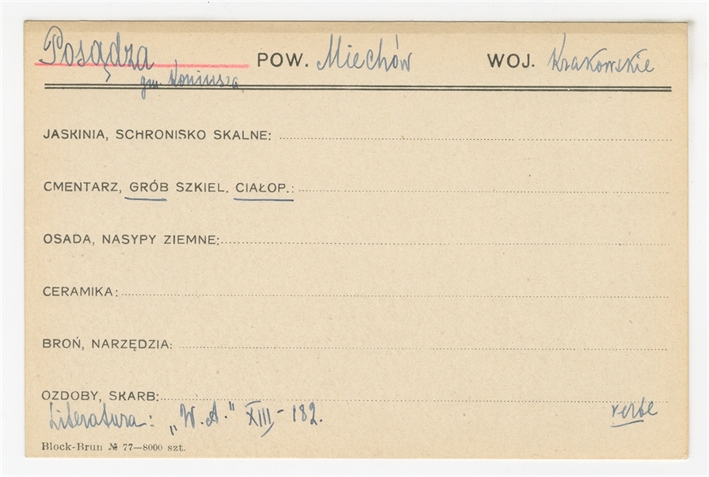 Posądza POW. Miechów WOJ. Krakowskie
gm. Koniusza
JASKINIA, SCHRONISKO SKALNE:
CMENTARZ, GRÓB SZKIEL, CIAŁOP.:
OSADA, NASYPY ZIEMNE:
CERAMIKA:
BROŃ, NARZĘDZIA:
OZDOBY, SKARB:
Literatura: „W.A." XIII - 182. verte
Block-Brun № 77—8000 szt.